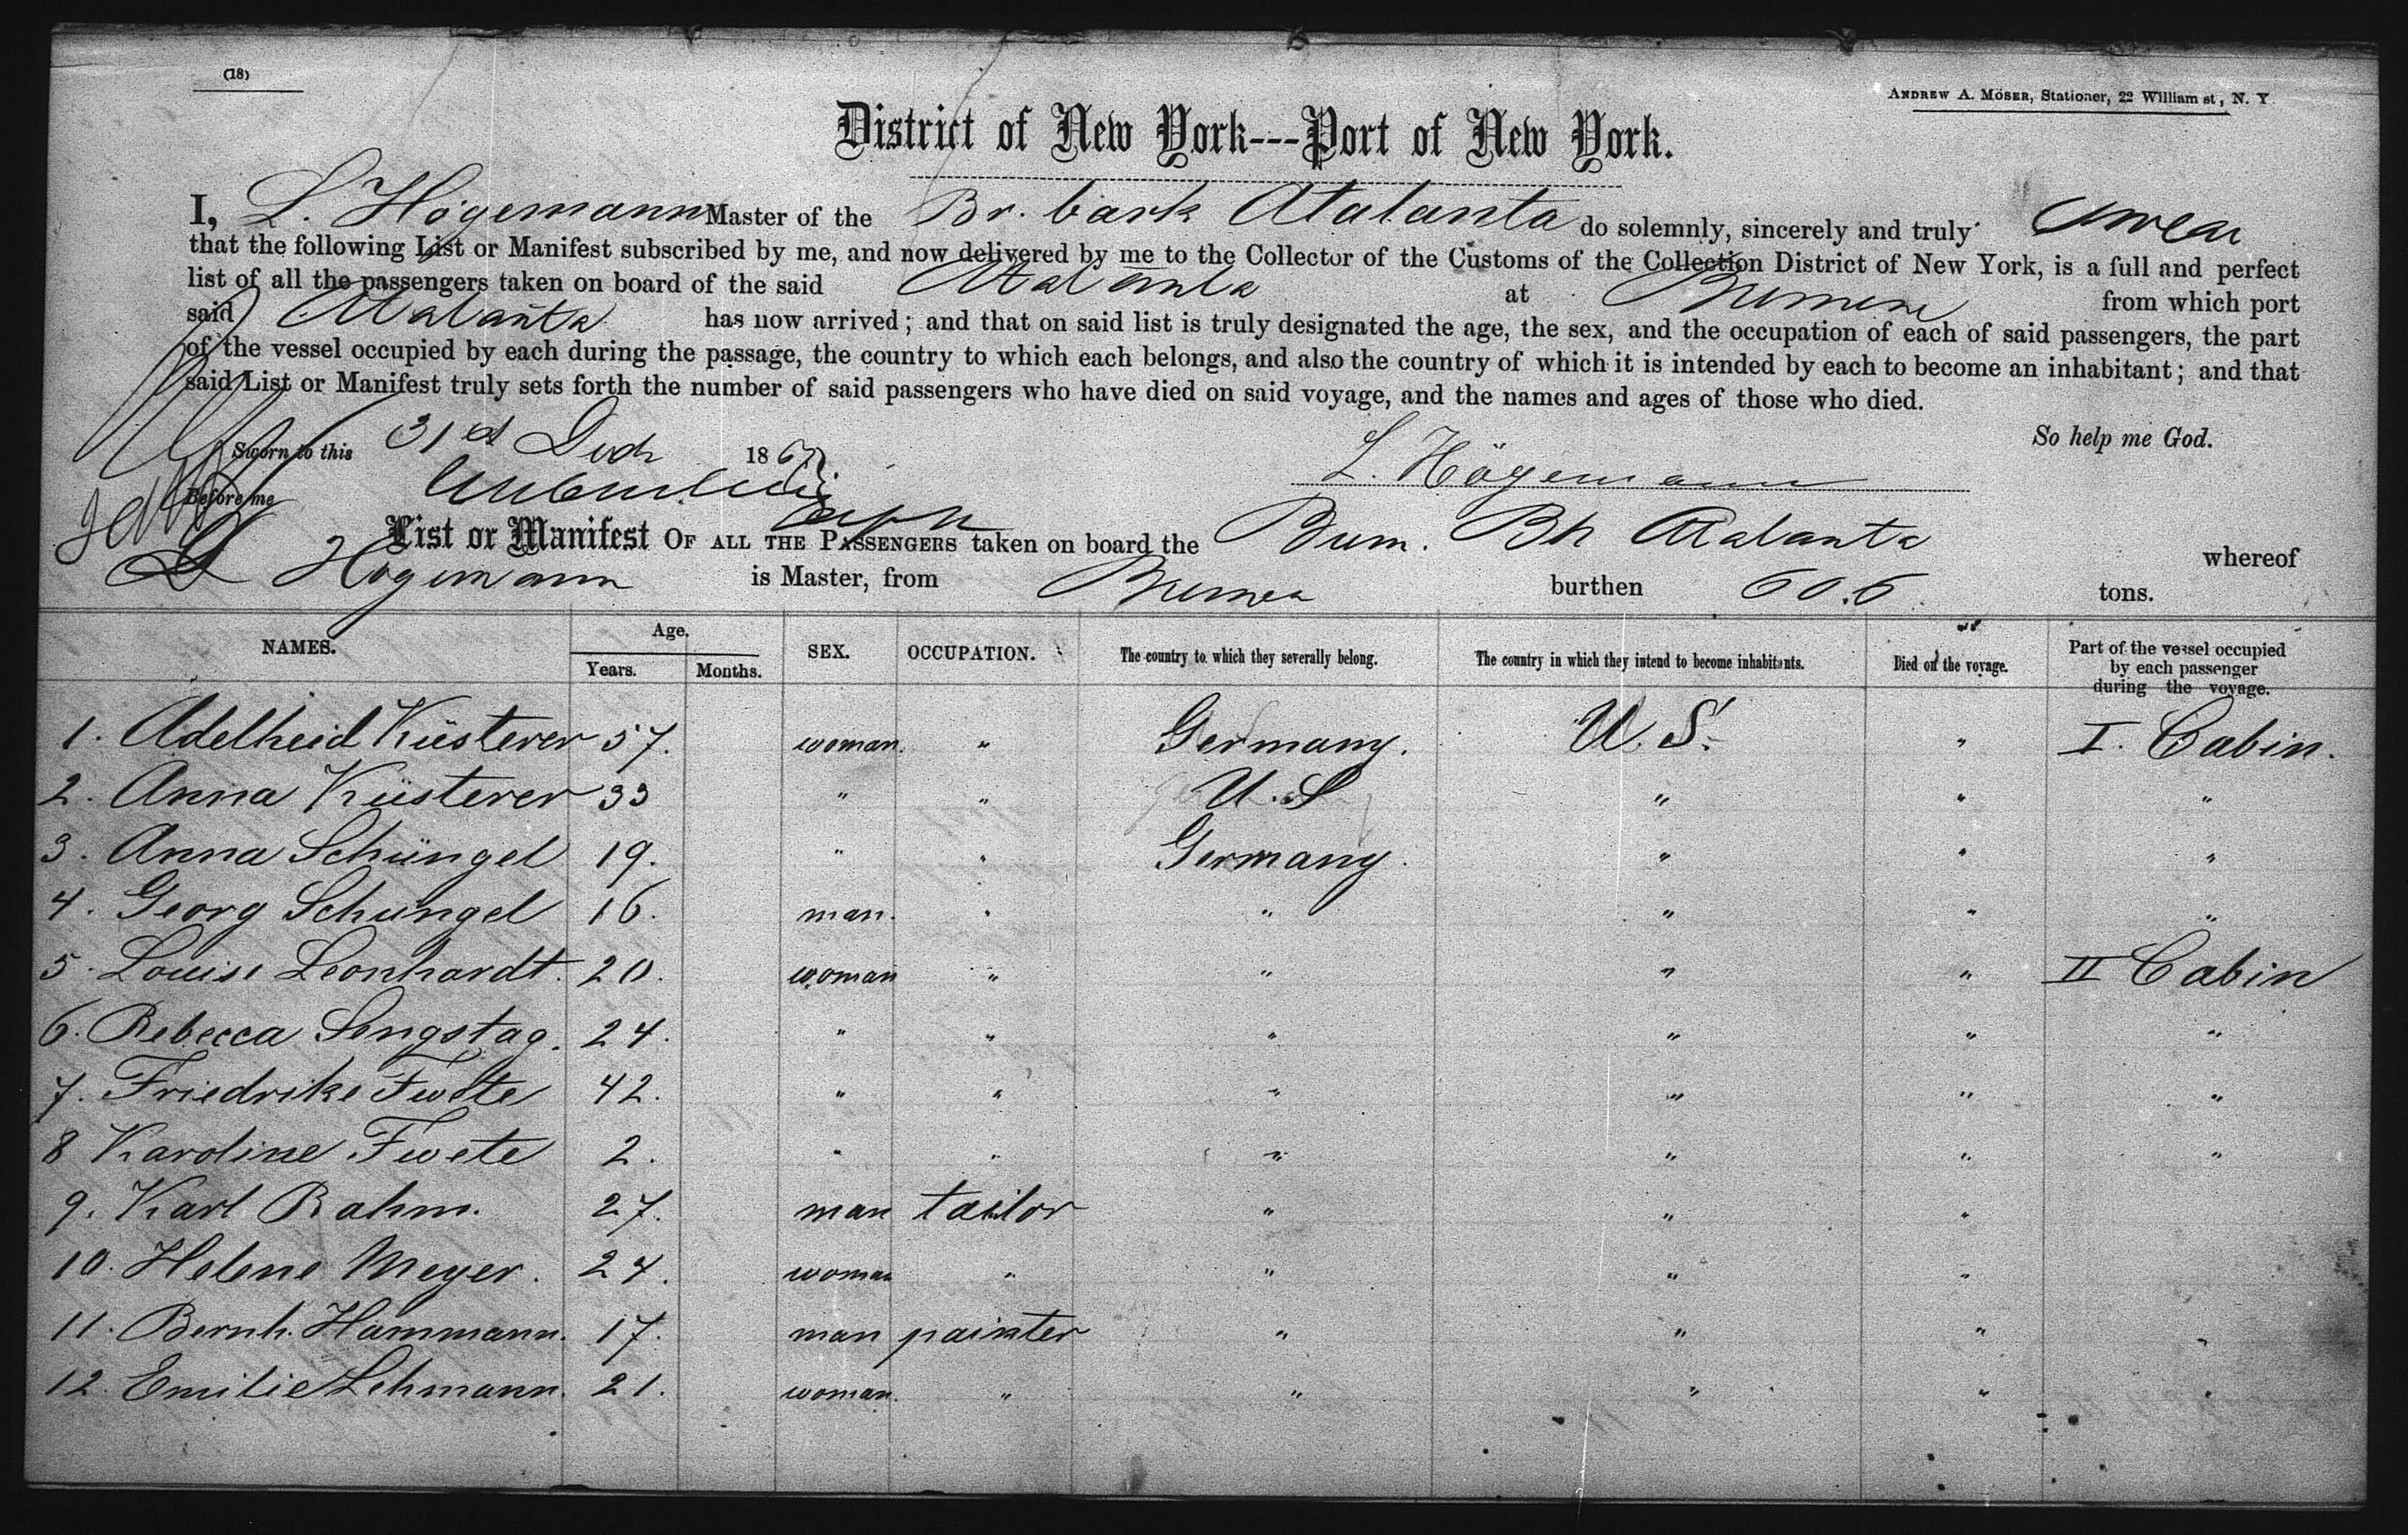 (18)
ANDREW A. MÖSER, Stationer, 22 William st, N. Y.
District of New York---Port of New York.
I, L. Högemann Master of the Br. bark Atalanta do solemnly, sincerely and truly swear
that the following List or Manifest subscribed by me, and now delivered by me to the Collector of the Customs of the Collection District of New York, is a full and perfect
list of all the passengers taken on board of the said Atalanta at Bremen from which port
said Atalanta has now arrived; and that on said list is truly designated the age, the sex, and the occupation of each of said passengers, the part
of the vessel occupied by each during the passage, the country to which each belongs, and also the country of which it is intended by each to become an inhabitant; and that
said List or Manifest truly sets forth the number of said passengers who have died on said voyage, and the names and ages of those who died.
So help me God.
Sworn to this 31st Dech 186
L. Högemann
Before me
List or Manifest OF ALL THE PASSENGERS taken on board the Brem. Bk Atalanta whereof
L Högemann is Master, from Bremen burthen 606 tons.
NAMES. Age. Years. Months. SEX. OCCUPATION. The country to which they severally belong. The country in which they intend to become inhabitants. Died on the voyage. Part of the vessel occupied by each passenger during the voyage.
1. Adelheid Küsterer 57. woman. " Germany. U. S. " I. Cabin.
2. Anna Küsterer 33 " " U. S " " "
3. Anna Schüngel 19. " " Germany. " " "
4. Georg Schüngel 16. man. " " " " "
5. Louise Leonhardt. 20. woman " " " " II Cabin
6. Rebecca Sengstag. 24. " " " " " "
7. Friedrike Twete 42. " " " " " "
8 Karoline Twete 2. " " " " " "
9. Karl Rahm. 27. man tailor " " "
10. Helene Meyer. 24. woman " " " "
11. Bernh. Hammann. 17. man painter " " " "
12. Emilie Lehmann. 21. woman. " " " " "